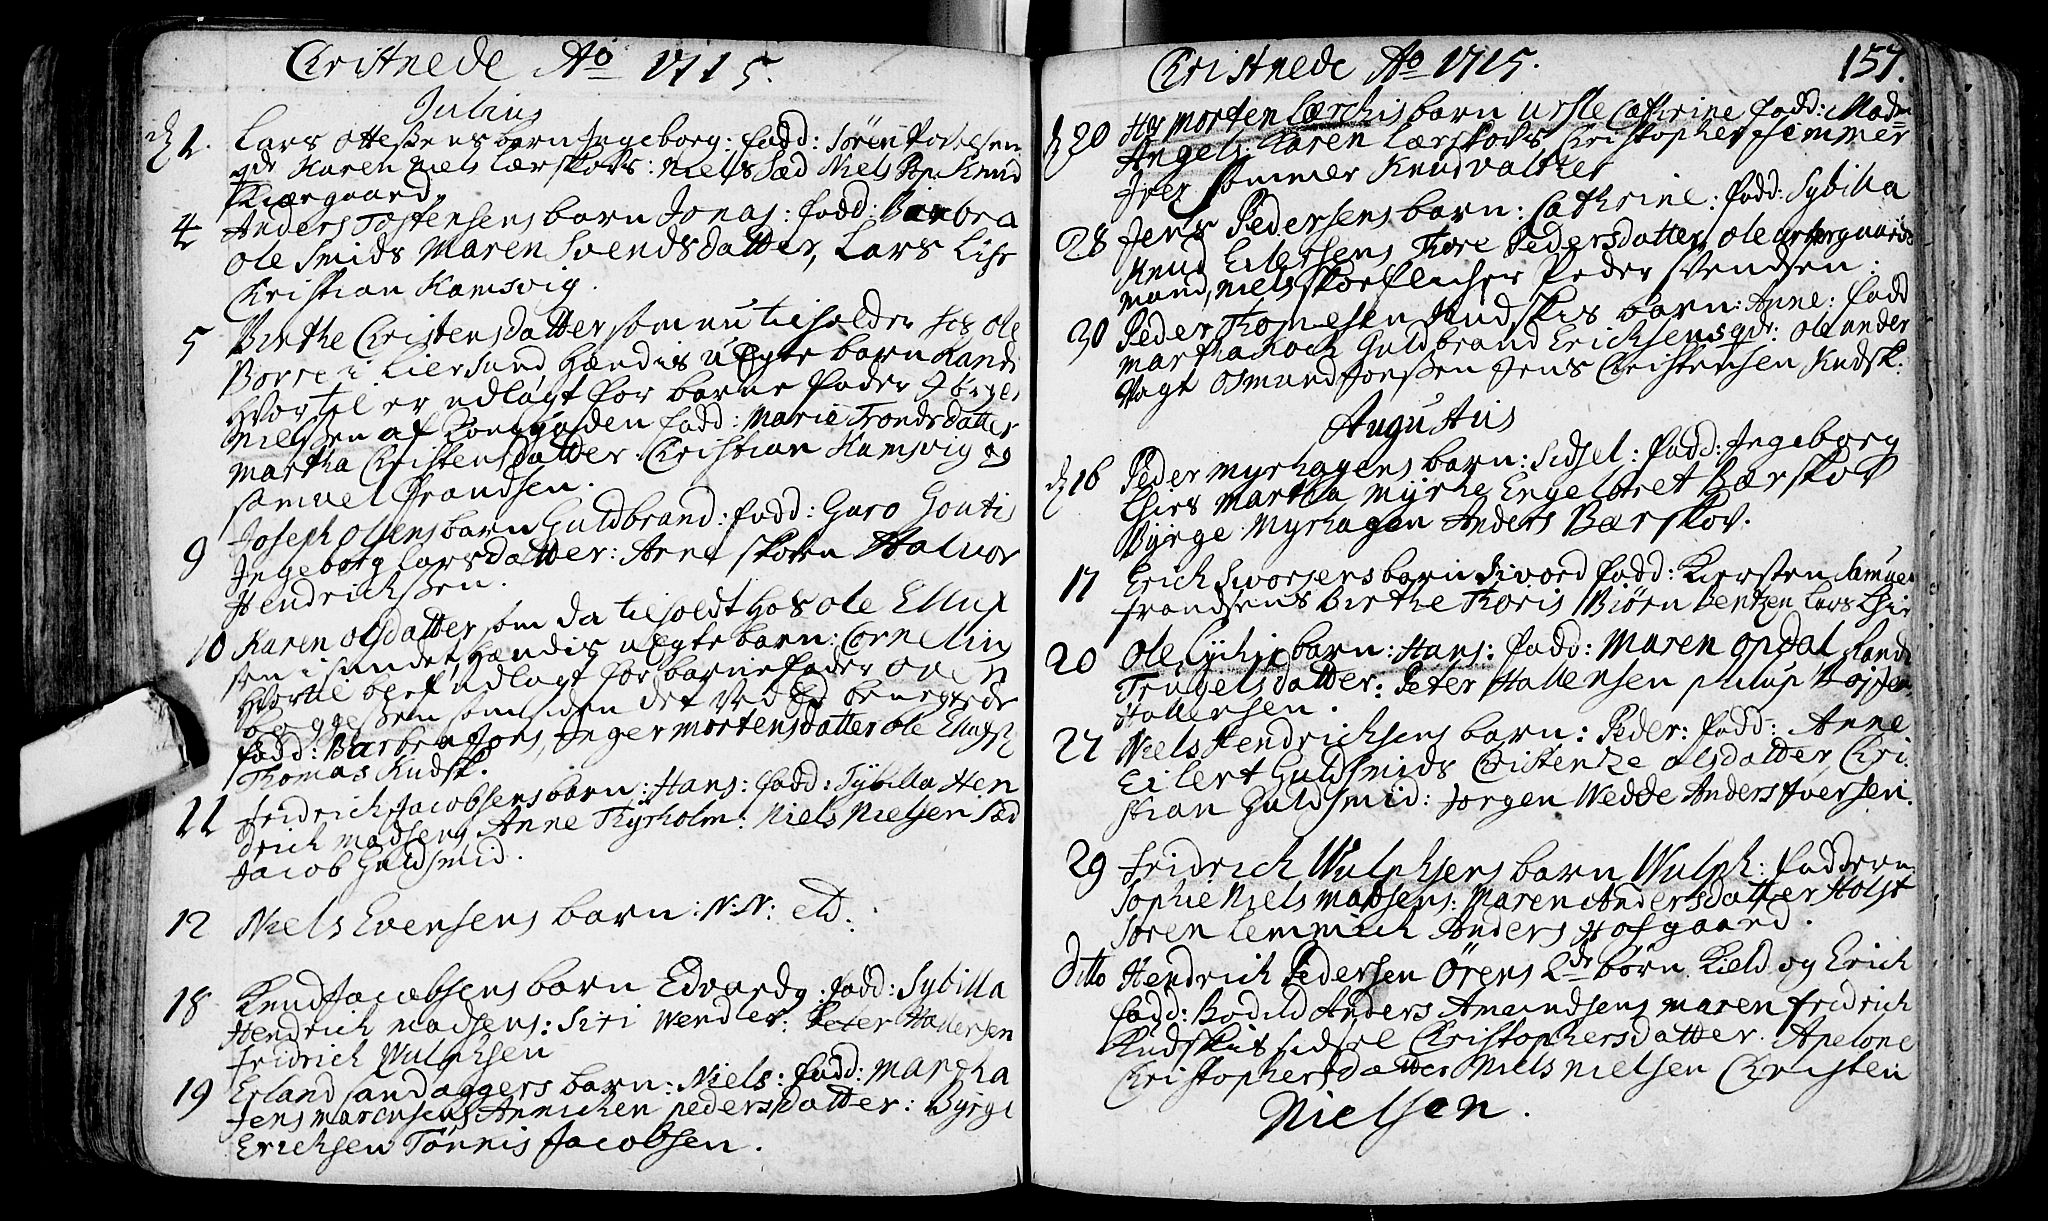 Christnede Ao 1715.
Julius
d 1. Lars Ottessens barn Ingeborg: fadd: Sören Povelsen
gdr Karen Niels Lærskovs: Niels Sæd Niels Knud
Kiærgaard
4 Anders Tostensens barn Jonas: fadd: Barbra
Ole Smids Maren Svendsdatter, Lars Lihr
Christian Kamsvig.
5 Birthe Christensdatter som nu tilholder hos Ole
Borre i Liersund hændis uEgte barn Randi
hvortil er udlagt for barne fader Börge
Nielssen af fadd: Marie Trondsdatter
Martha Christensdatter Christian Kamsvig og
Samuel Frandsen.
9 Joseph Olsens barn Guldbrand: fadd: Guro Goutis
Ingeborg Larsdatter: Arne Skoen Halvor
Hendrichssen.
10 Karen Olsdatter som da tilholdt hos Ole Elluf
sen i sundet, hændis uEgte barn: Cornelius
hvortil blef udlagt for barnefader Oven
som siden det ved Ed benegtede
fadd: Barbra Jens, Inger Mortensdatter Ole Ellufs
Thomas Kudsk.
11 Fridrich Jacobsens barn: Hans: fadd: Sybilla Hen
drich Madsens Anne Thyrholm: Niels Nielsen Sæd
Jacob Guldsmid.
12 Niels Evensens barn: N:N: etd.
18 Knud Jacobsens barn Edvard: fadd: Sybilla
Hendrich Madsens: Siri Wendler: Peter Hallersen
Fridrich Wulphsen
19 Erland Sandaggers barn: Niels: fadd: Martha
Jens Marensens Annichen Pedersdatter: Byrge
Erichsen Tönnis Jacobsen.
Christnede Ao 1715. 157.
d 20 Hr Morten Lærchis barn Ursle Cathrine fadd: Madm
Angels Karen Lærskovs Christopher Hemmer
Iver Sommer Knud Valther
28 Jens Pedersens barn: Cathrine: fadd: Sybilla
Knud Eilersens Thore Pedersdatter Ole
mand, Niels Peder Svendsen.
30 Peder Thomesen Kudskis barn: Anne: fadd
Martha Koch Guldbrand Erichsens gdr: Ole under
Vogt Osmund Jonssen Jens Christensen Kudsk.
Augustus
d 16 Peder Myrhagens barn: Sidsel: fadd: Ingeborg
Lhirs Martha Myrhe Engelbret Bærskov
Byrge Myrhagen Anders Bærskov.
17 Erich Sworsens barn Sivord fadd: Kiersten Samuel
Frandsens Birthe Thoris Biörn Bentzen Lars Lhir
20 Ole barn: Hans: fadd: Maren Opdal Randi
Trugelsdatter: Peter Hallensen Philup
Hallersen.
27 Niels Hendrichsens barn: Peder: fadd: Anne
Eilert Guldsmids Christentze Olsdatter, Chri
stian Guldsmid: Jorgen Wedde Anders Iversen.
29 Fridrich Wulphsens barn Wulph: faddern
Sophie Niels Madsens: Maren Andersdatter Holst
Sören Lemmich Anders Hofgaard.
ditto Hendrich Pedersen Örens 2de börn Kield og Erich
fadd: Bodild Anders Amundsens Maren Fridrich
Kudskis Sidsel Christophersdatter. Apelone
Christophersdatter Niels Nielsen Christen
Nielsen.